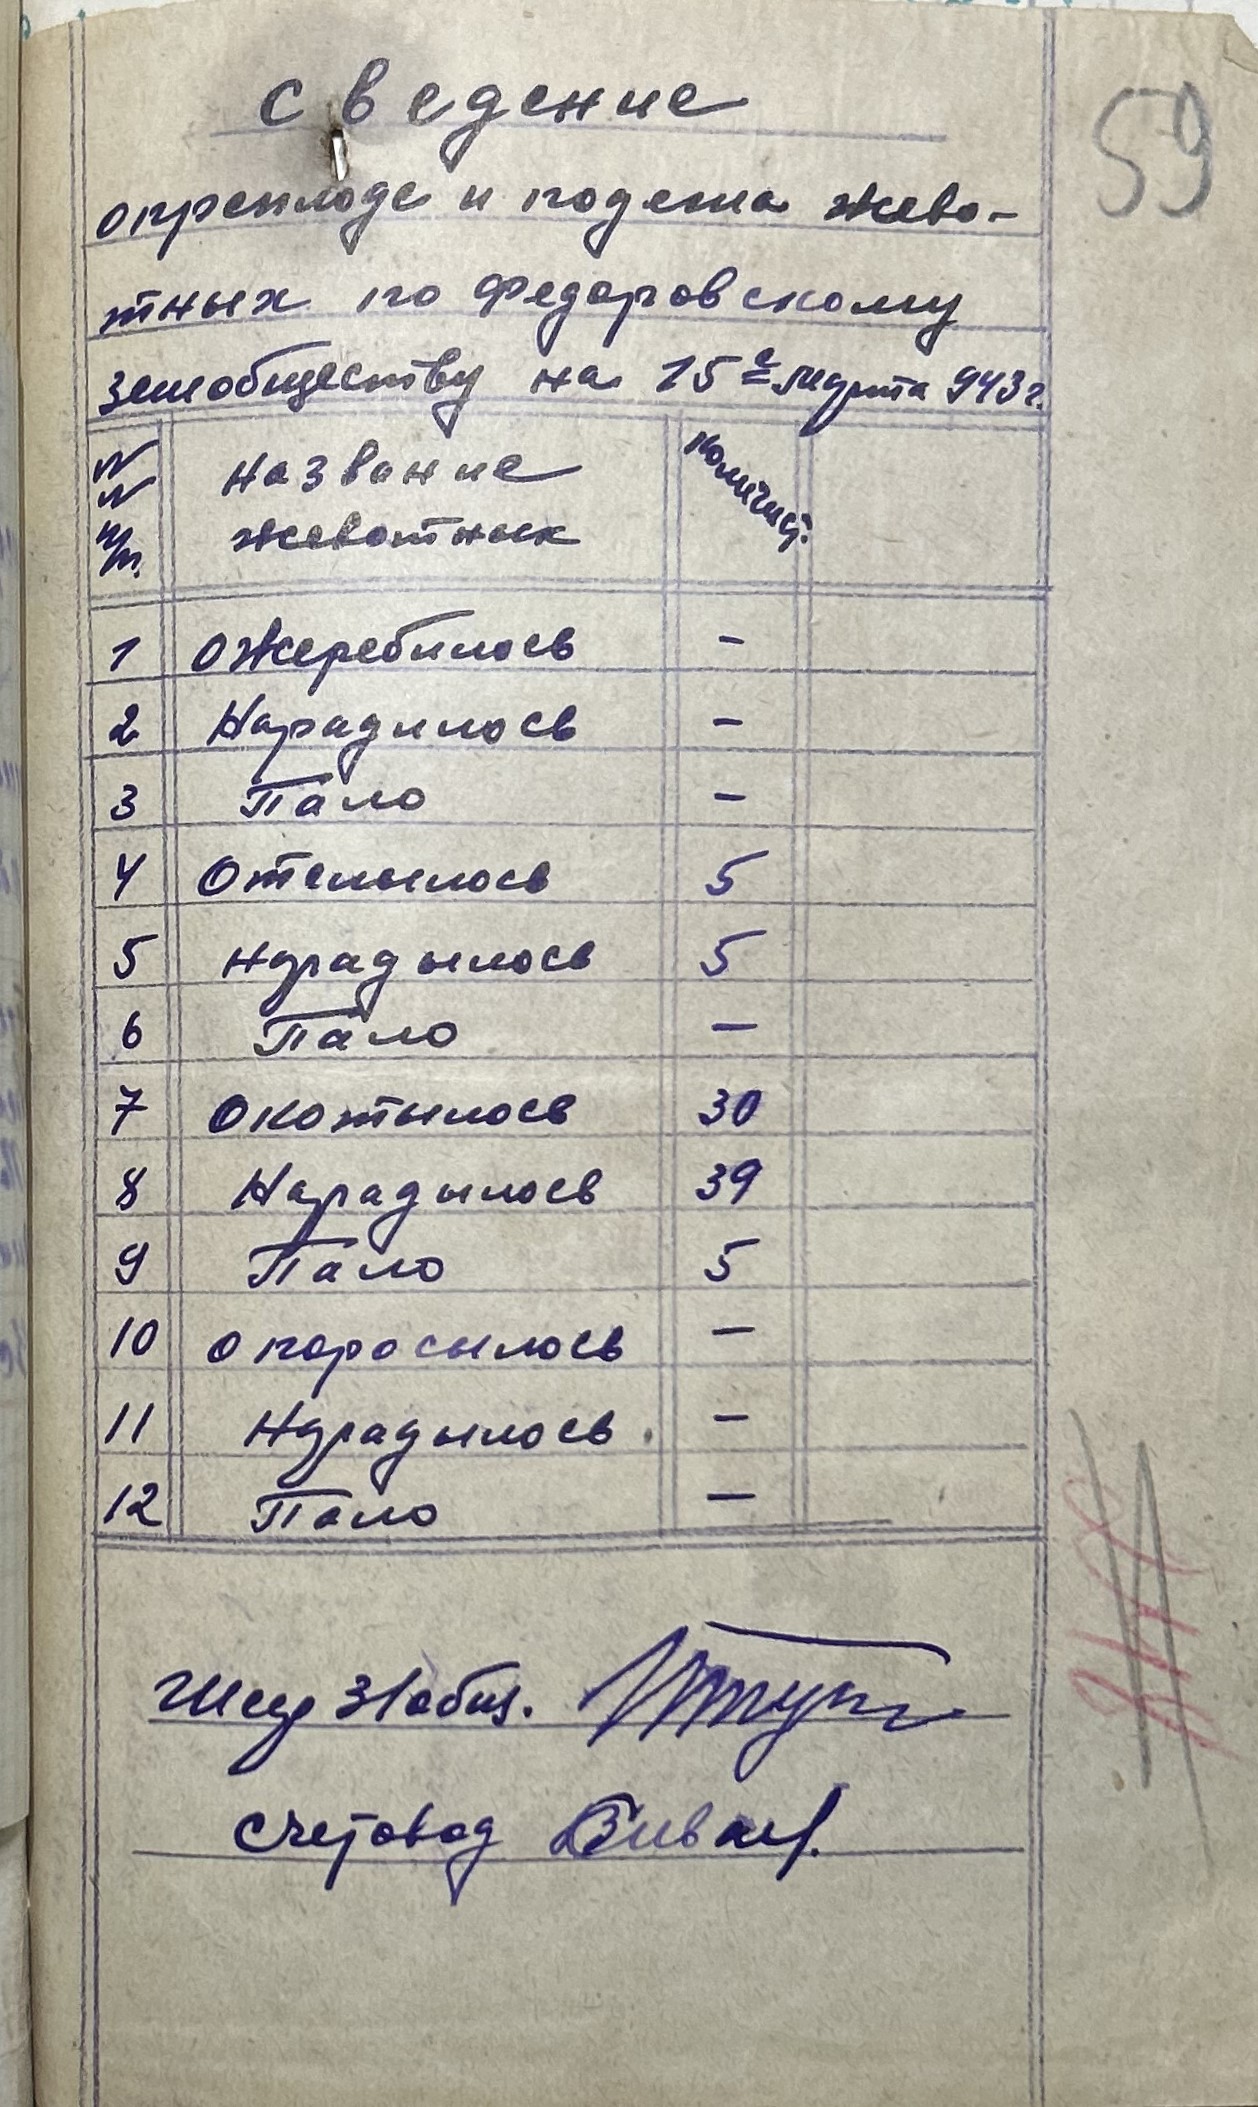 сведение
59
опреплоде и подежа жево-
тных по Федаровскому
земобществу на 15е марта 943 г.
NN п/п. название жевотных количист.
1 Ожеребилось –
2 Нарадилось –
3 Пало –
4 Отелылось 5
5 нарадылось 5
6 Пало –
7 Окотылось 30
8 Нарадылось 39
9 Пало 5
10 опоросылось –
11 Нарадылось. –
12 Пало –
счетовод